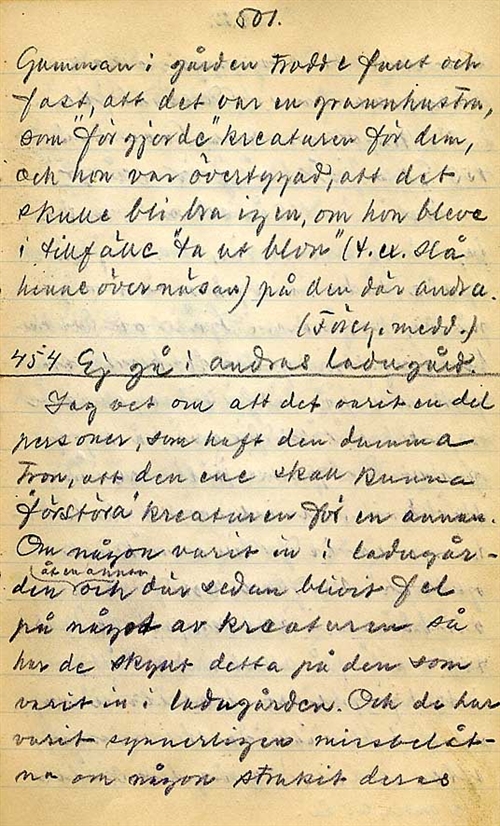 501.
Gumman i gården trodde fast och
fast, att det var en grannhustru,
som "förgjorde" kreaturen för dem,
och hon var övertygad, att det
skulle bli bra igen, om hon bleve
i tillfälle "ta ut blod" (t. ex. slå
henne över näsan) på den där andra.
(Föreg. medd.)
454 Ej gå i andras ladugård.
Jag vet om att det varit en del
personer, som haft den dumma
tron, att den ene skall kunna
"förstöra" kreaturen för en annan.
Om någon varit in i ladugår-
åt en annan
den och där sedan blivit fel
på något av kreaturen så
har de skyllt detta på den som
varit in i ladugården. Och de har
varit synnerligen missbelåt-
na om någon strukit deras